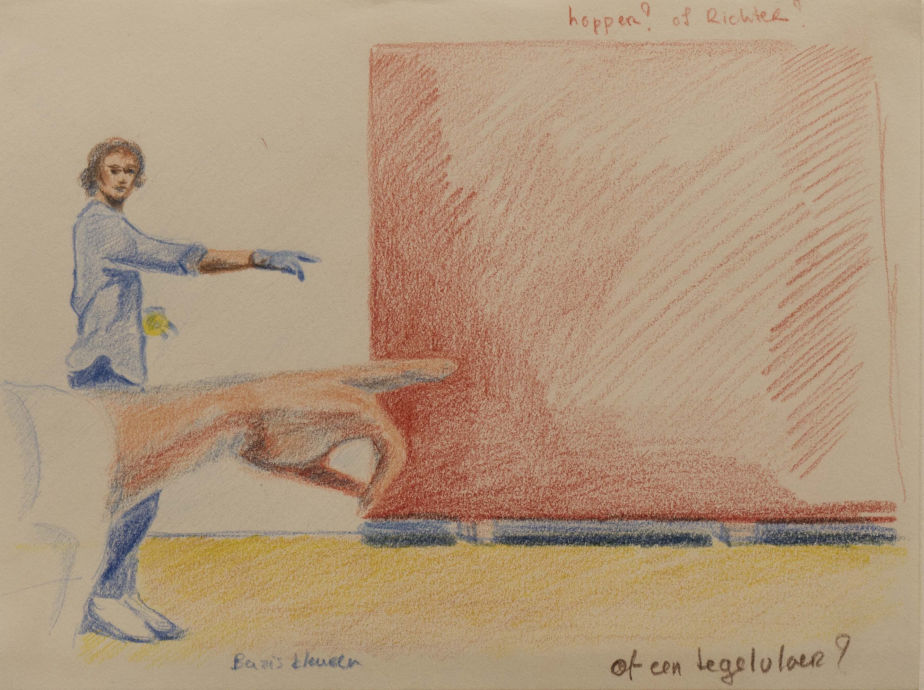 hopper? of Richter?
Basis kleuren
of een tegelvloer?